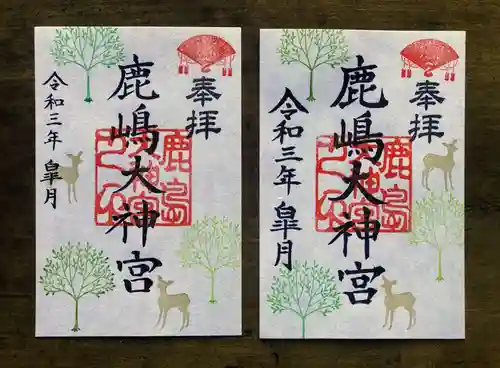 奉拝
鹿嶋大神宮
令和三年 皐月
奉拝
鹿嶋大神宮
令和三年 皐月